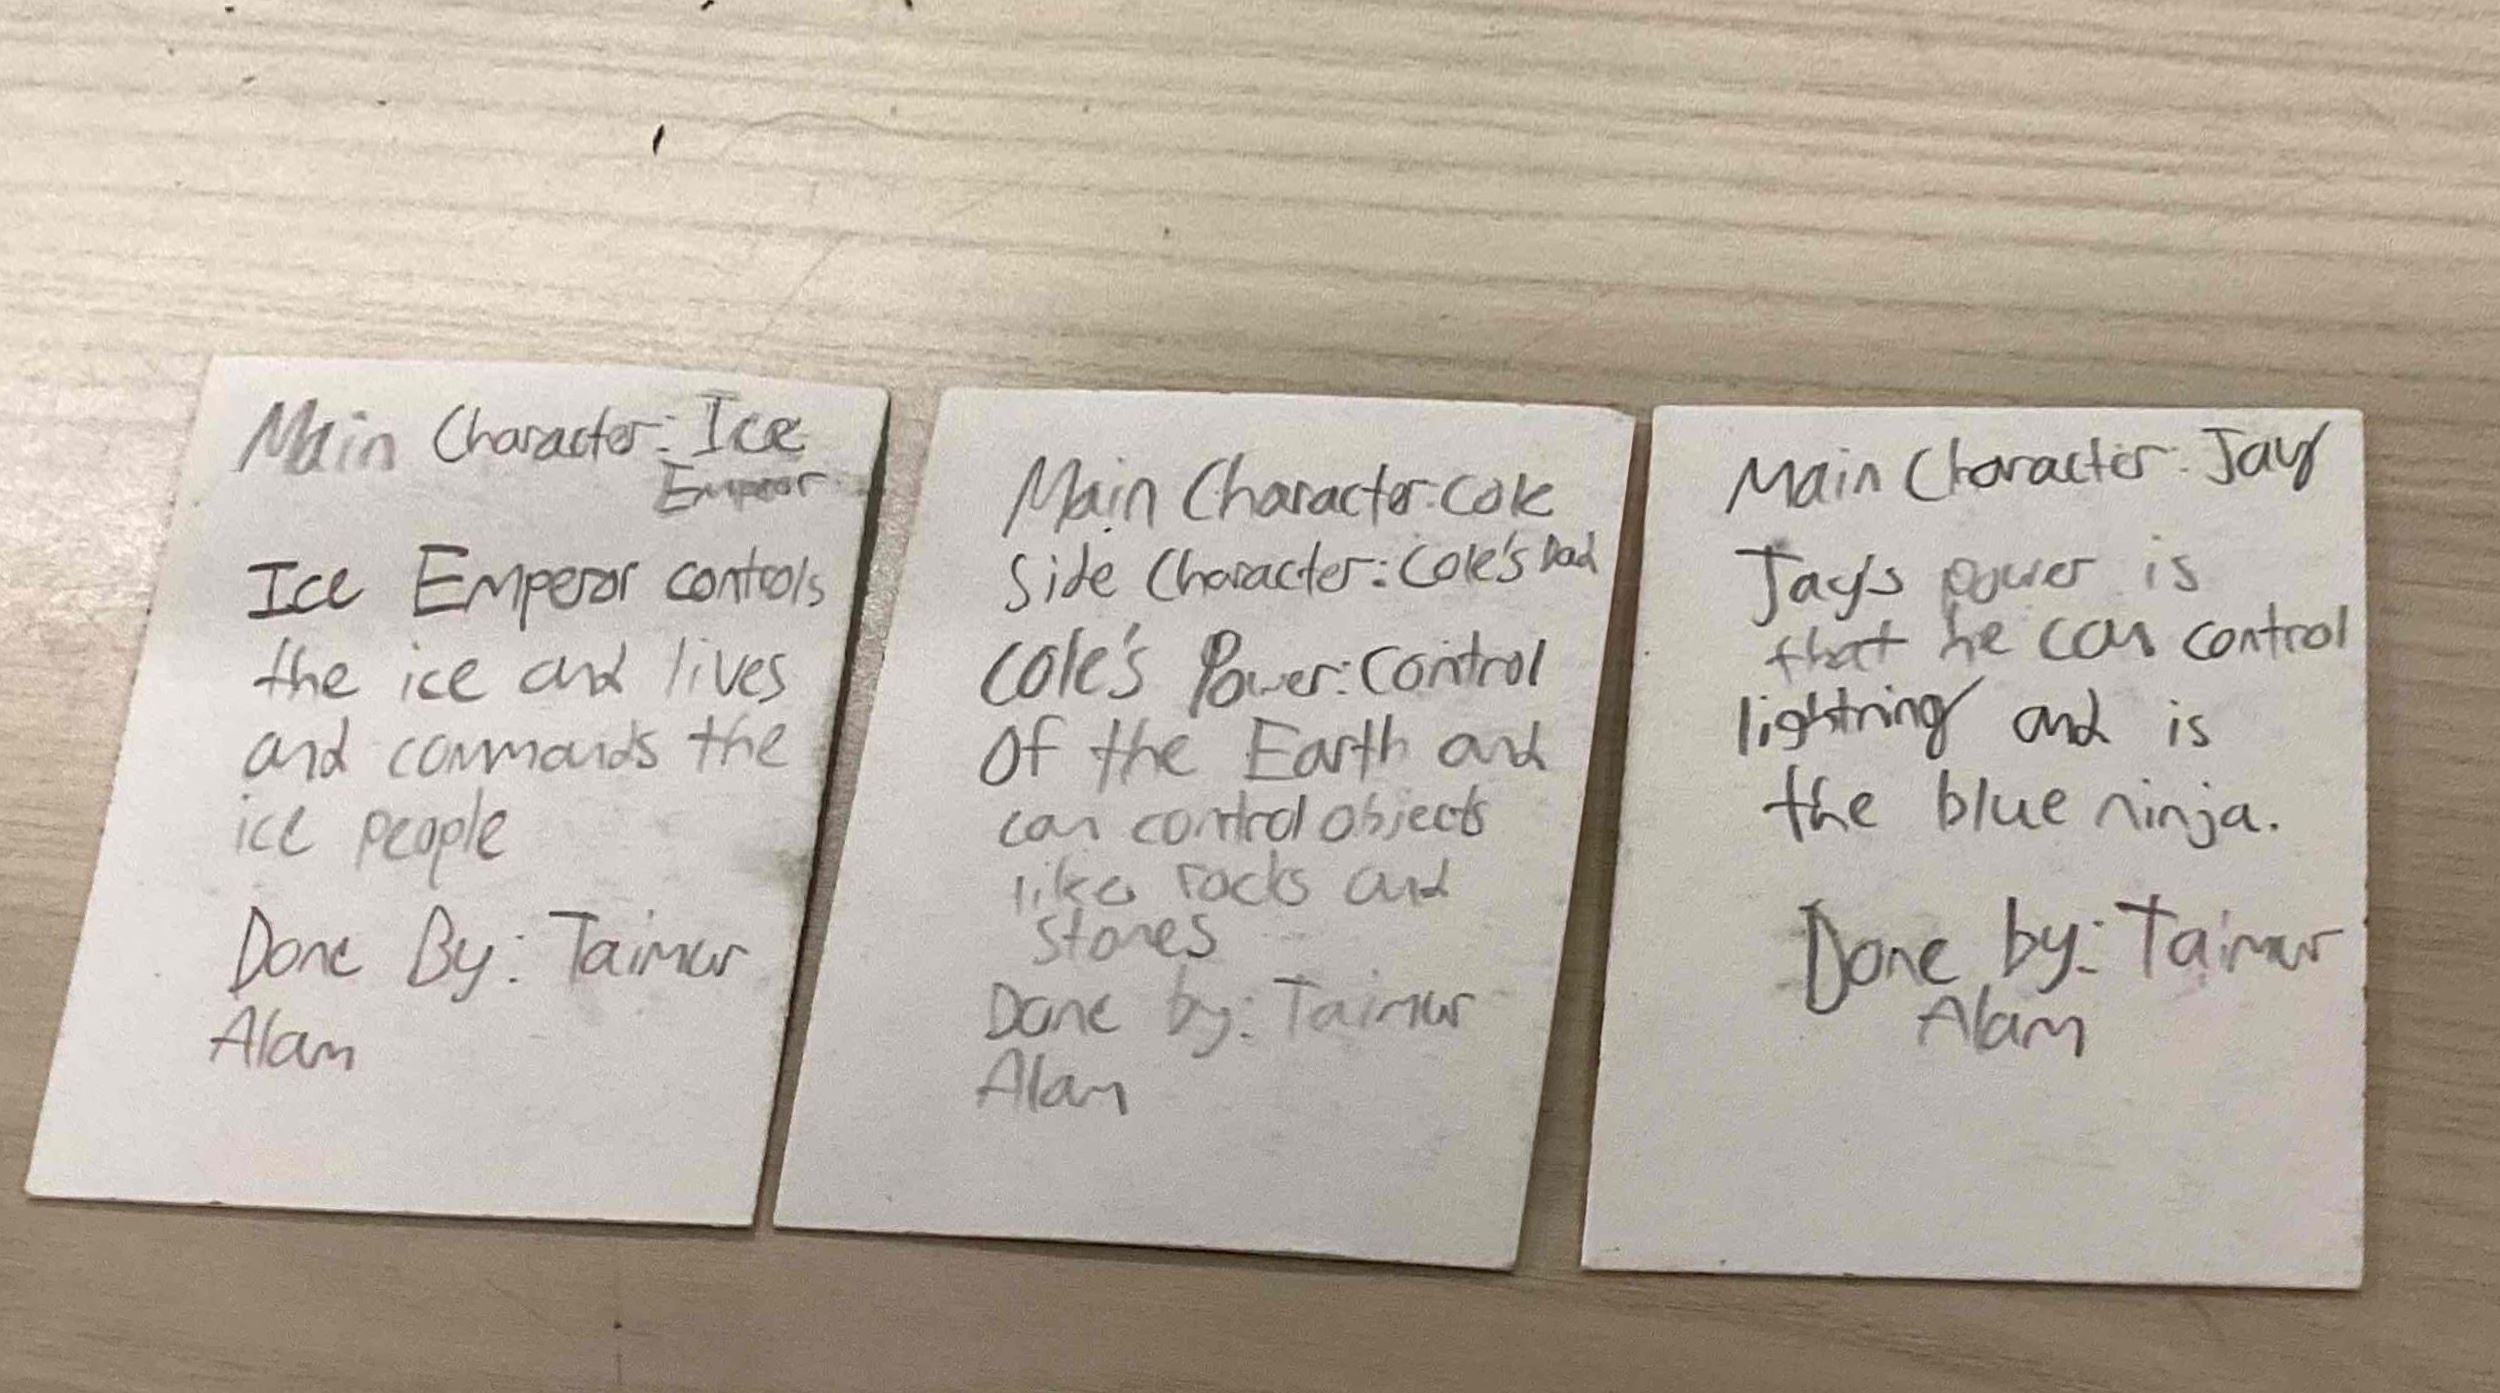 Main Character: Ice
Emperor
Ice Emperor controls
the ice and lives
and commands the
ice people
Done By: Taimur
Alam
Main Character: Cole
Side Character: Cole's Dad
Cole's Power: Control
of the Earth and
can control objects
like rocks and
stones
Done by: Taimur
Alam
Main Character: Jay
Jay's power is
that he can control
lightning and is
the blue ninja.
Done by: Taimur
Alam